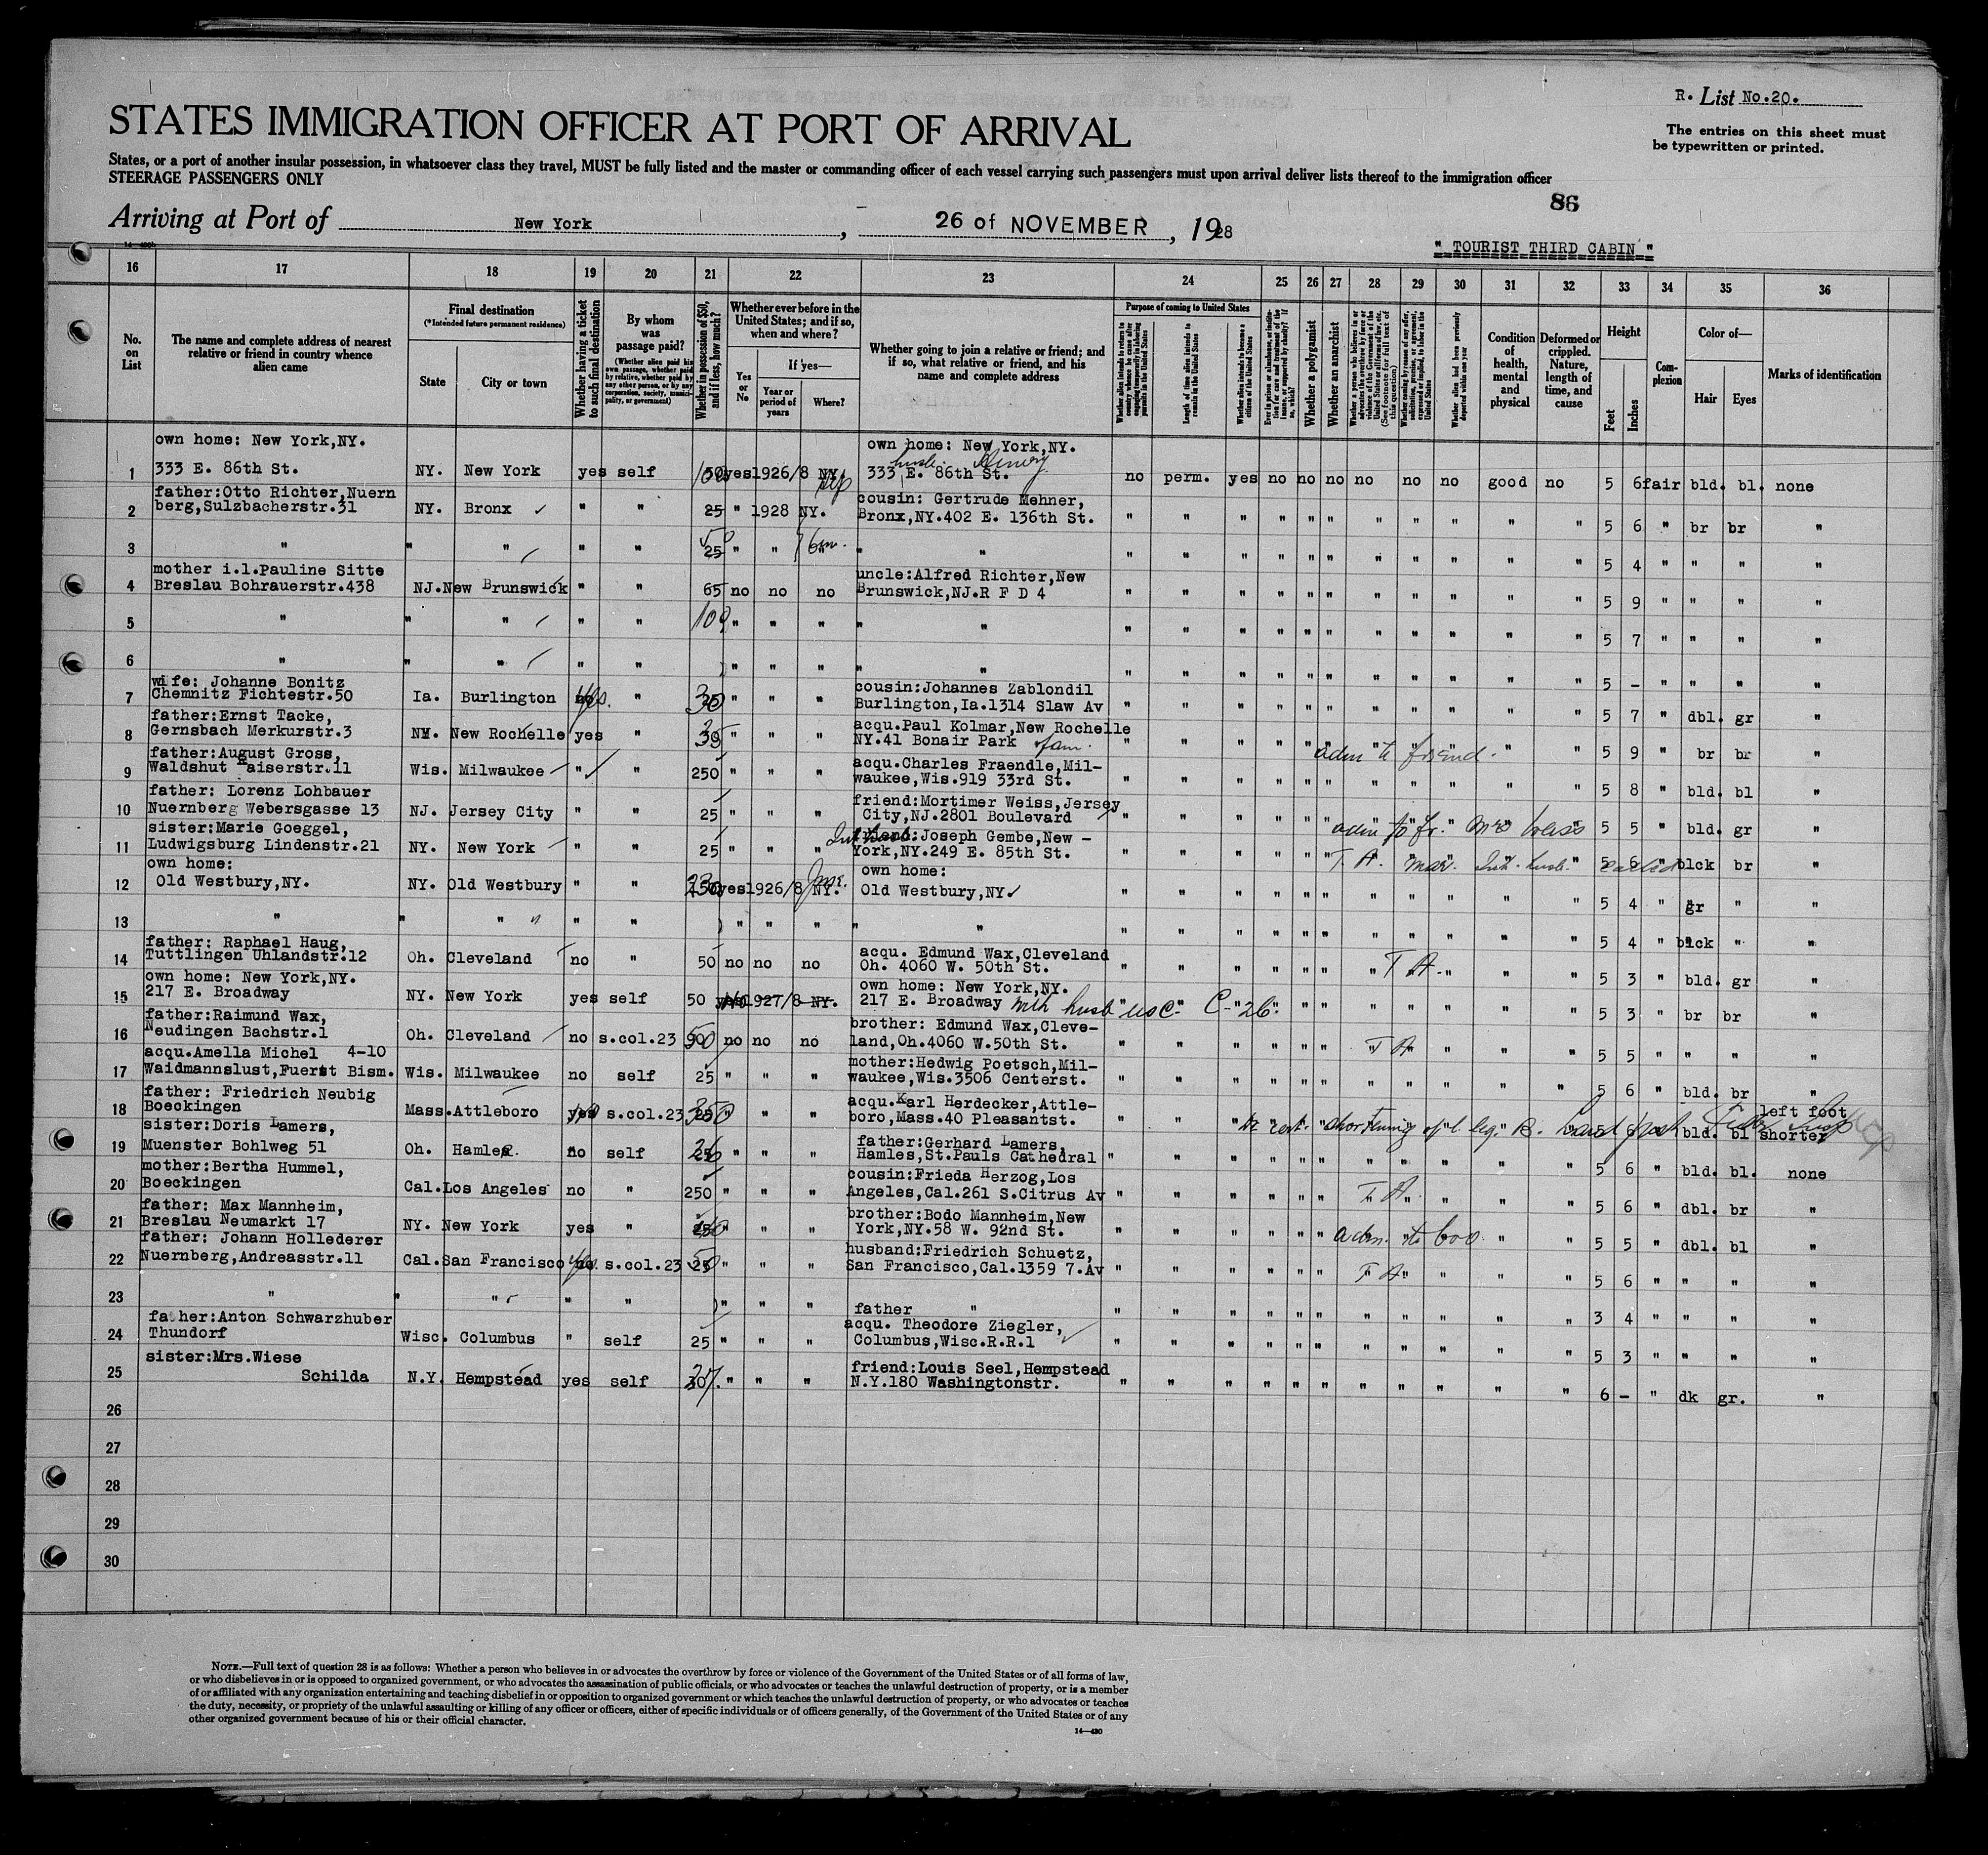 R. List No.20.
The entries on this sheet must
be typewritten or printed.
STATES IMMIGRATION OFFICER AT PORT OF ARRIVAL
States, or a port of another insular possession, in whatsoever class they travel, MUST be fully listed and the master or commanding officer of each vessel carrying such passengers must upon arrival deliver lists thereof to the immigration officer
STEERAGE PASSENGERS ONLY
86
Arriving at Port of New York, 26 of NOVEMBER, 1928
" TOURIST THIRD CABIN "
16 17 18 19 20 21 22 23 24 25 26 27 28 29 30 31 32 33 34 35 36
No. on List
The name and complete address of nearest relative or friend in country whence alien came
Final destination
(*Intended future permanent residence)
State City or town
Whether having a ticket to such final destination
By whom was passage paid?
(Whether alien paid his own passage, whether paid by relative, whether paid by any other person, or by any corporation, society, municipality, or government)
Whether in possession of $50, and if less, how much?
Whether ever before in the United States; and if so, when and where?
Yes or No
If yes—
Year or period of years
Where?
Whether going to join a relative or friend; and if so, what relative or friend, and his name and complete address
Purpose of coming to United States
Length of time alien intends to remain in the United States
Whether alien intends to become a citizen of the United States
Whether a polygamist
Whether an anarchist
Condition of health, mental and physical
Deformed or crippled. Nature, length of time, and cause
Height
Feet Inches
Complexion
Color of—
Hair Eyes
Marks of identification
own home: New York,NY. own home: New York,NY.
1 333 E. 86th St. NY. New York yes self yes 1926/8 NY. 333 E. 86th St. no perm. yes no no no no no no good no 5 6 fair bld. bl. none
father:Otto Richter,Nuern cousin: Gertrude Mehner,
2 berg,Sulzbacherstr.31 NY. Bronx " " 25 " 1928 NY. Bronx,NY.402 E. 136th St. " " " " " " " " " " " 5 6 " br br "
3 " " " " " 25 " " " " " " " " " " " " " " " 5 4 " " " "
mother i.l.Pauline Sitte uncle:Alfred Richter,New
4 Breslau Bohrauerstr.438 NJ. New Brunswick " " 65 no no no Brunswick,NJ.R F D 4 " " " " " " " " " " " 5 9 " " " "
5 " " " " " 100 " " " " " " " " " " " " " " " 5 7 " " " "
6 " " " " " " " " " " " " " " " " " " " " 5 - " " " "
wife: Johanne Bonitz cousin:Johannes Zablondil
7 Chemnitz Fichtestr.50 Ia. Burlington yes. " 30 " " " Burlington,Ia.1314 Slaw Av " " " " " " " " " " " 5 7 " dbl. gr "
father:Ernst Tacke, acqu.Paul Kolmar,New Rochelle
8 Gernsbach Merkurstr.3 NY. New Rochelle yes " " " " NY.41 Bonair Park fam. " " " " " " adm to friend. " " 5 9 " br br "
father:August Gross, acqu.Charles Fraendle,Mil-
9 Waldshut Kaiserstr.11 Wis. Milwaukee " " 250 " " " waukee,Wis.919 33rd St. " " " " " " " " " " " 5 8 " bld. bl "
father: Lorenz Lohbauer friend:Mortimer Weiss,Jersey
10 Nuernberg Webersgasse 13 NJ. Jersey City " " 25 " " " City,NJ.2801 Boulevard " " " " " " adm to fr. Mrs Weiss 5 5 " bld. gr "
sister:Marie Goeggel, Joseph Gembe,New -
11 Ludwigsburg Lindenstr.21 NY. New York " " 25 " " " York,NY.249 E. 85th St. " " " " " " T. A. mar. Int. husb. called 5 6 " blck br "
own home: own home:
12 Old Westbury,NY. NY. Old Westbury " " yes 1926/8 NY. Old Westbury,NY. " " " " " " " " " " " 5 4 " gr " "
13 " " " " " " " " " " " " " " " " " " " " 5 4 " blck " "
father: Raphael Haug, acqu. Edmund Wax,Cleveland
14 Tuttlingen Uhlandstr.12 Oh. Cleveland no " 50 no no no Oh. 4060 W. 50th St. " " " " " " " T A. " " " 5 3 " bld. gr "
own home: New York,NY. own home: New York,NY.
15 217 E. Broadway NY. New York yes self 50 1927/8 NY. 217 E. Broadway with husb usc C-26. " " " " " " " 5 3 " br br "
father:Raimund Wax, brother: Edmund Wax,Cleve-
16 Neudingen Bachstr.1 Oh. Cleveland no s.col.23 no no no land,Oh.4060 W.50th St. " " " " " " T A " " " 5 5 " " " "
acqu.Amella Michel 4-10 mother:Hedwig Poetsch,Mil-
17 Waidmannslust,Fuerst Bism. Wis. Milwaukee no self 25 " " " waukee,Wis.3506 Centerst. " " " " " " " " " " " 5 6 " bld. br "
father: Friedrich Neubig acqu.Karl Herdecker,Attle- left foot
18 Boeckingen Mass. Attleboro s.col.23 " " " boro,Mass.40 Pleasantst. " " shortening of l. leg. 5 6 bld. bl shorter
sister:Doris Lamers, father:Gerhard Lamers,
19 Muenster Bohlweg 51 Oh. Hamler. no self " " " Hamles,St.Pauls Cathedral " " " " " " " " " " " 5 6 " bld. bl. none
mother:Bertha Hummel, cousin:Frieda Herzog,Los
20 Boeckingen Cal. Los Angeles no " 250 " " " Angeles,Cal.261 S.Citrus Av " " " " " " T. A. " " " 5 6 " dbl. br "
father: Max Mannheim, brother:Bodo Mannheim,New
21 Breslau Neumarkt 17 NY. New York yes " " " " York,NY.58 W. 92nd St. " " " " " " adm. to bro " " 5 5 " dbl. bl "
father: Johann Hollederer husband:Friedrich Schuetz,
22 Nuernberg,Andreasstr.11 Cal. San Francisco s.col.23 " " " San Francisco,Cal.1359 7.Av " " " " " " T A " " " 5 6 " " " "
23 " " " " " " " " father " " " " " " " " " " " " 3 4 " " " "
father:Anton Schwarzhuber acqu. Theodore Ziegler,
24 Thundorf Wisc. Columbus " self 25 " " " Columbus,Wisc.R.R.1 " " " " " " " " " " " 5 3 " " " "
sister:Mrs.Wiese friend:Louis Seel,Hempstead
25 Schilda N.Y. Hempstead yes self " " " N.Y.180 Washingtonstr. " " " " " " " " " " " 6 - " dk gr. "
26
27
28
29
30
NOTE.—Full text of question 28 is as follows: Whether a person who believes in or advocates the overthrow by force or violence of the Government of the United States or of all forms of law,
or who disbelieves in or is opposed to organized government, or who advocates the assassination of public officials, or who advocates or teaches the unlawful destruction of property, or is a member
of or affiliated with any organization entertaining and teaching disbelief in or opposition to organized government or which teaches the unlawful destruction of property, or who advocates or teaches
the duty, necessity, or propriety of the unlawful assaulting or killing of any officer or officers, either of specific individuals or of officers generally, of the Government of the United States or of any
other organized government because of his or their official character.
14—430